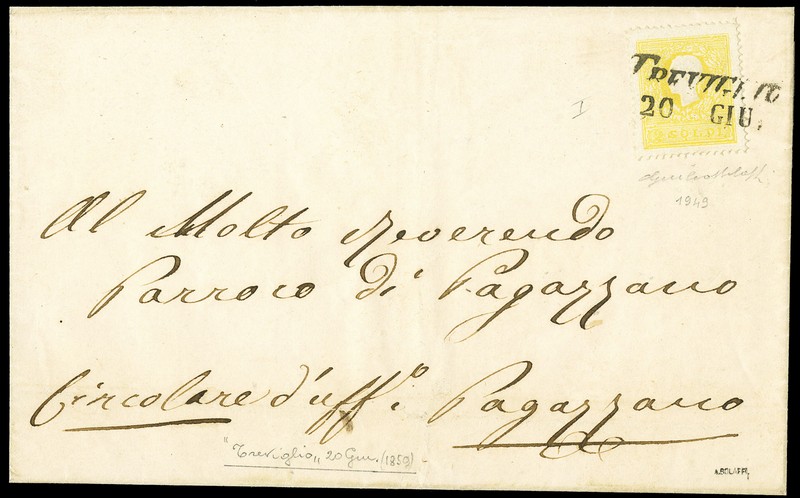 TREVIGLIO
20 GIU.
2 SOLDI
I
1949
Al Molto Reverendo
Parroco di Pagazzano
Circolare d'uffio Pagazzano
"Treviglio" 20 Giu. (1859) -
A.BOLAFFI